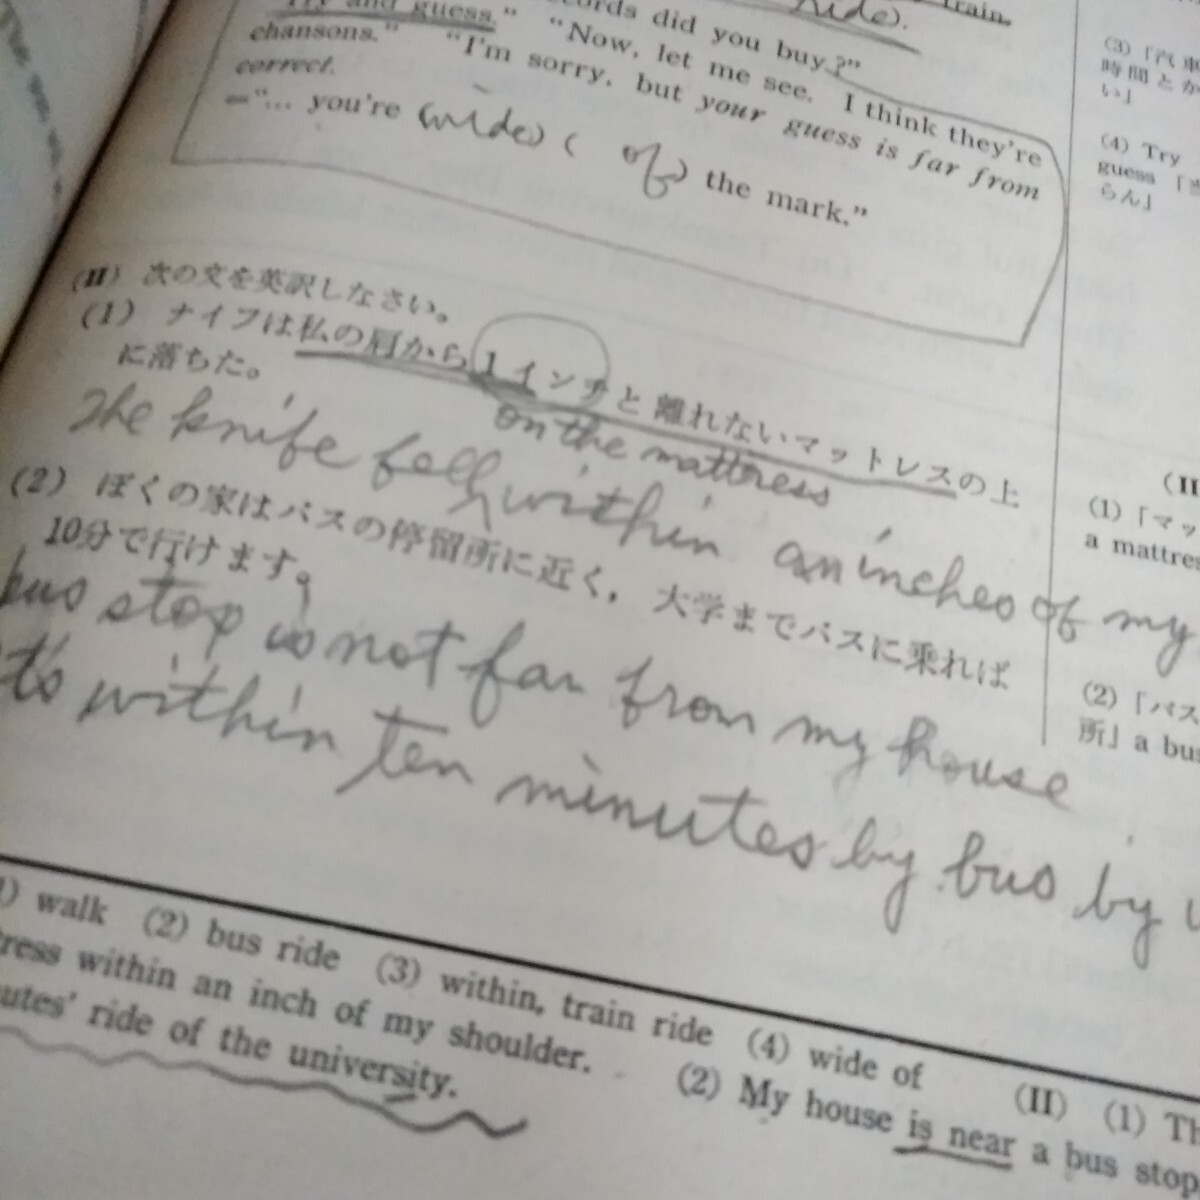 train.
ride).
did you buy?"
"Try and guess." "Now, let me see. I think they're
chansons." "I'm sorry, but your guess is far from
correct.
—"... you're (wide) ( of) the mark."
(II) 次の文を英訳しなさい。
(1) ナイフは私の肩から1インチと離れないマットレスの上
に落ちた。
on the mattress
The knife fell within an inches of my
(2) ぼくの家はバスの停留所に近く，大学までバスに乗れば
10分で行けます。
bus stop is not far from my house
within ten minutes by bus by
walk (2) bus ride (3) within, train ride (4) wide of (II) (1)
within an inch of my shoulder. (2) My house is near a bus stop
ride of the university.
(3) 「汽車
時間とか
い」
(4) Try
guess 「当
らん」
(II
(1) 「マッ
a mattres
(2) 「バス
所」 a bus